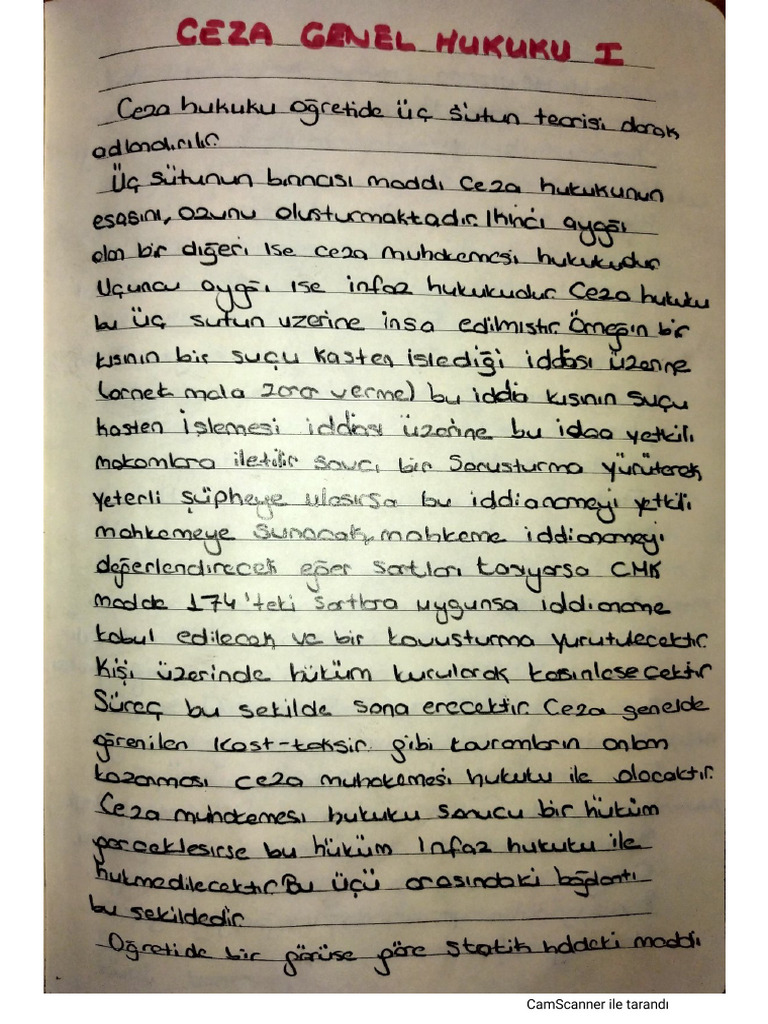 CEZA GENEL HUKUKU I
Ceza hukuku öğretide üç sütun teorisi olarak
adlandırılır.
Üç sütunun birincisi maddi ceza hukukunun
esasını, özünü oluşturmaktadır. İkinci aygıtı
olan bir diğeri ise ceza muhakemesi hukukudur
Üçüncü aygıtı ise infaz hukukudur. Ceza hukuku
bu üç sütun üzerine inşa edilmiştir. Örneğin bir
kişinin bir suçu kasten işlediği iddiası üzerine
(örnek mala zarar verme) bu iddia kişinin suçu
kasten işlemesi iddiası üzerine bu iddaa yetkili
makamlara iletilir savcı bir Soruşturma yürüterek
yeterli şüpheye ulaşırsa bu iddianameyi yetkili
mahkemeye sunacak, mahkeme iddianameyi
değerlendirecek eğer şartları taşıyorsa CMK
madde 174'teki şartlara uygunsa iddianame
kabul edilecek ve bir kovuşturma yürütülecektir.
Kişi üzerinde hüküm kurularak kesinleşecektir
Süreç bu şekilde sona erecektir. Ceza genelde
görenilen Kast-taksir gibi kavramların anlam
kazanması ceza muhakemesi hukuku ile olacaktır.
Ceza muhakemesi hukuku sonucu bir hüküm
gerçekleşirse bu hüküm İnfaz hukuku ile
hükmedilecektir. Bu üçü arasındaki bağlantı
bu şekildedir.
Öğretide bir görüşe göre statik haldeki maddi
CamScanner ile tarandı